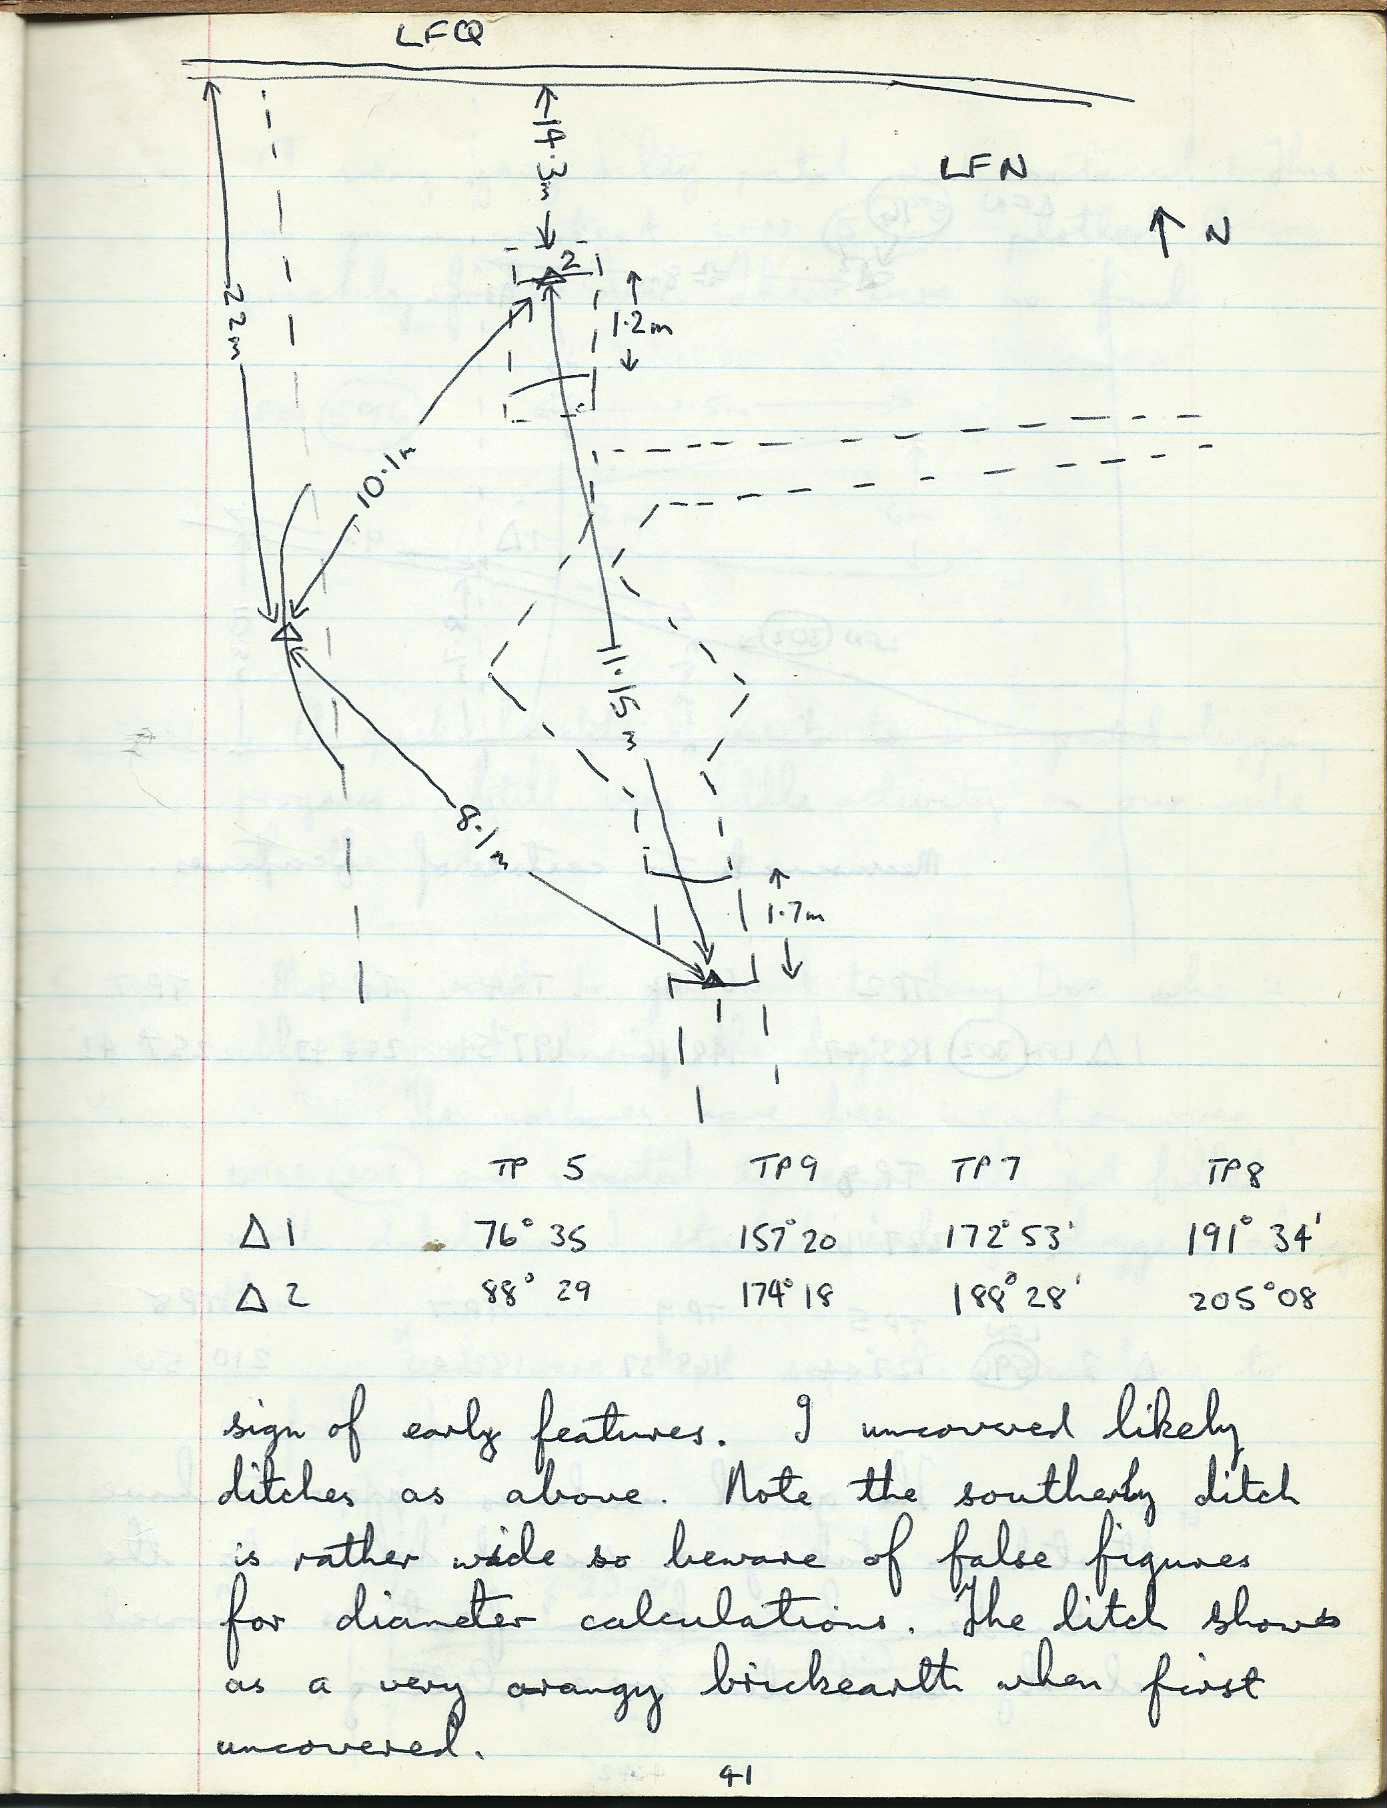 LFQ
14.3m
LFN
↑ N
2
1.2m
22m
10.1m
11.15m
8.1m
1.7m
TP 5 TP9 TP7 TP8
Δ 1 76° 35 157° 20 172° 53' 191° 34'
Δ 2 88° 29 174° 18 188° 28' 205° 08
sign of early features. I uncovered likely
ditches as above. Note the southerly ditch
is rather wide so beware of false figures
for diameter calculations. The ditch shows
as a very orangy brickearth when first
uncovered.
41